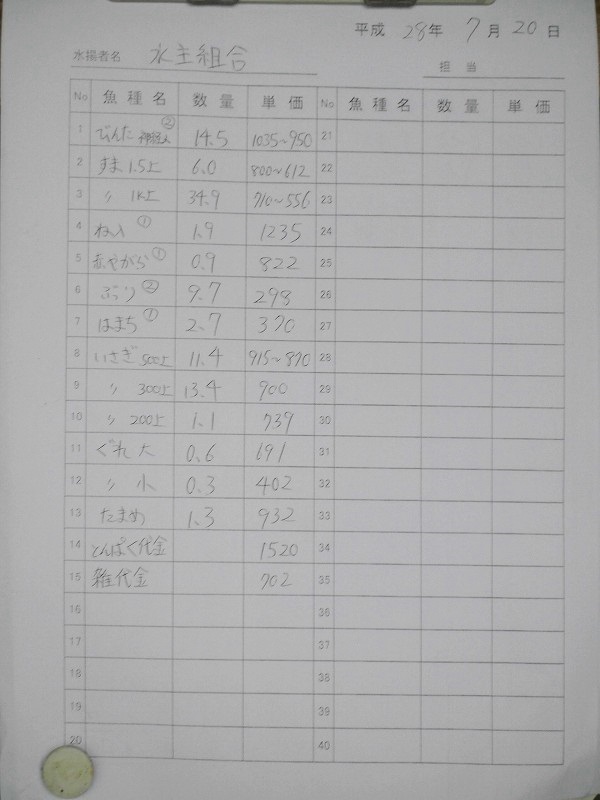 平成 28年 7月 20日
水揚者名 水主組合
担当
No 魚種名 数量 単価 No 魚種名 数量 単価
1 びんた ② 14.5 1035~950 21
2 すま 1.5上 6.0 800~612 22
3 〃 1K上 34.9 710~556 23
4 ねいり ① 1.9 1235 24
5 赤やがら ① 0.9 822 25
6 ぶり ② 9.7 298 26
7 はまち ① 2.7 370 27
8 いさぎ 500上 11.4 915~870 28
9 〃 300上 13.4 900 29
10 〃 200上 1.1 739 30
11 ぐれ 大 0.6 691 31
12 〃 小 0.3 402 32
13 たまめ 1.3 932 33
14 とんぱく代金 1520 34
15 雑代金 702 35
16 36
17 37
18 38
19 39
20 40